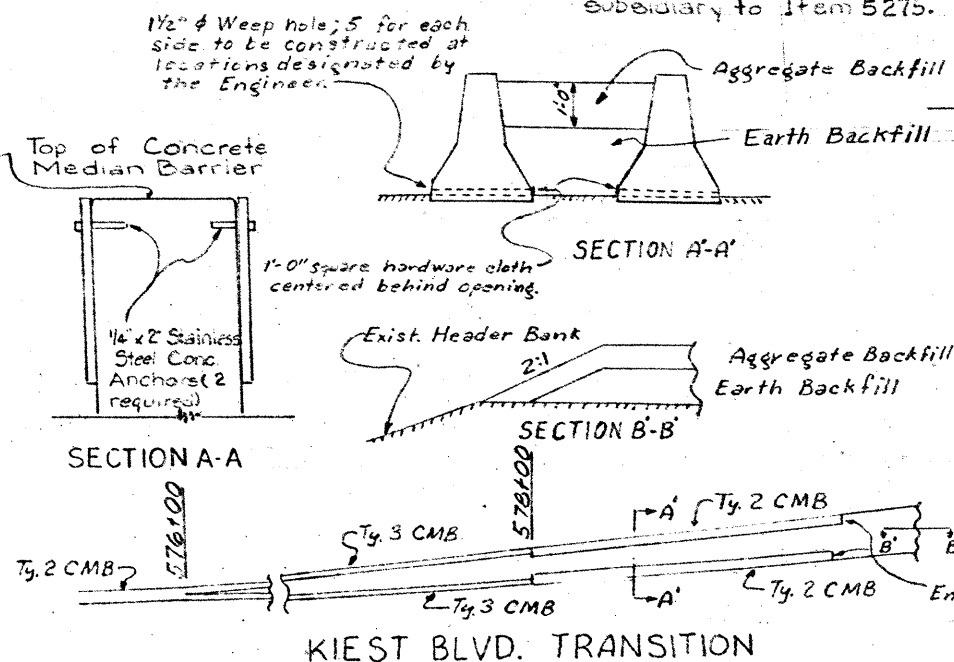 Subsidiary to Item 5275.
1½" ϕ Weep hole; 5 for each
side to be constructed at
locations designated by
the Engineer.
Aggregate Backfill
1'-0"
Earth Backfill
Top of Concrete
Median Barrier
SECTION A'-A'
1'-0" square hardware cloth
centered behind opening.
1/4" x 2" Stainless
Steel Conc.
Anchors (2
required)
SECTION A-A
Exist. Header Bank
2:1
Aggregate Backfill
Earth Backfill
SECTION B'-B'
576+00
578+00
Ty. 2 CMB
Ty. 3 CMB
A'
Ty. 2 CMB
B'
Ty. 3 CMB
A'
Ty. 2 CMB
KIEST BLVD. TRANSITION